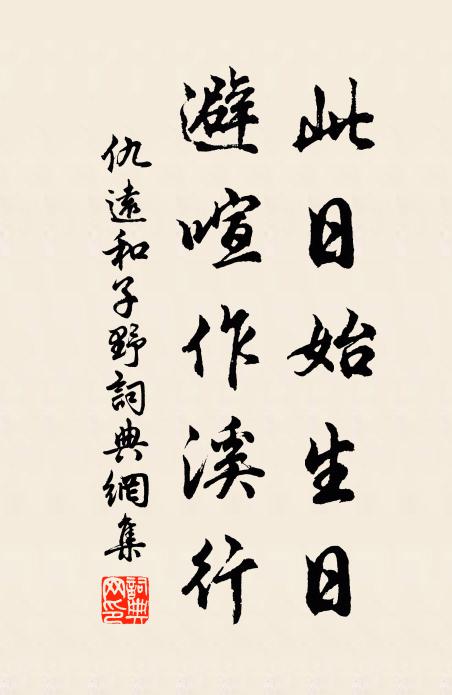 此日始生日
避喧作溪行
仇遠和子野詞典網集
詞典网印